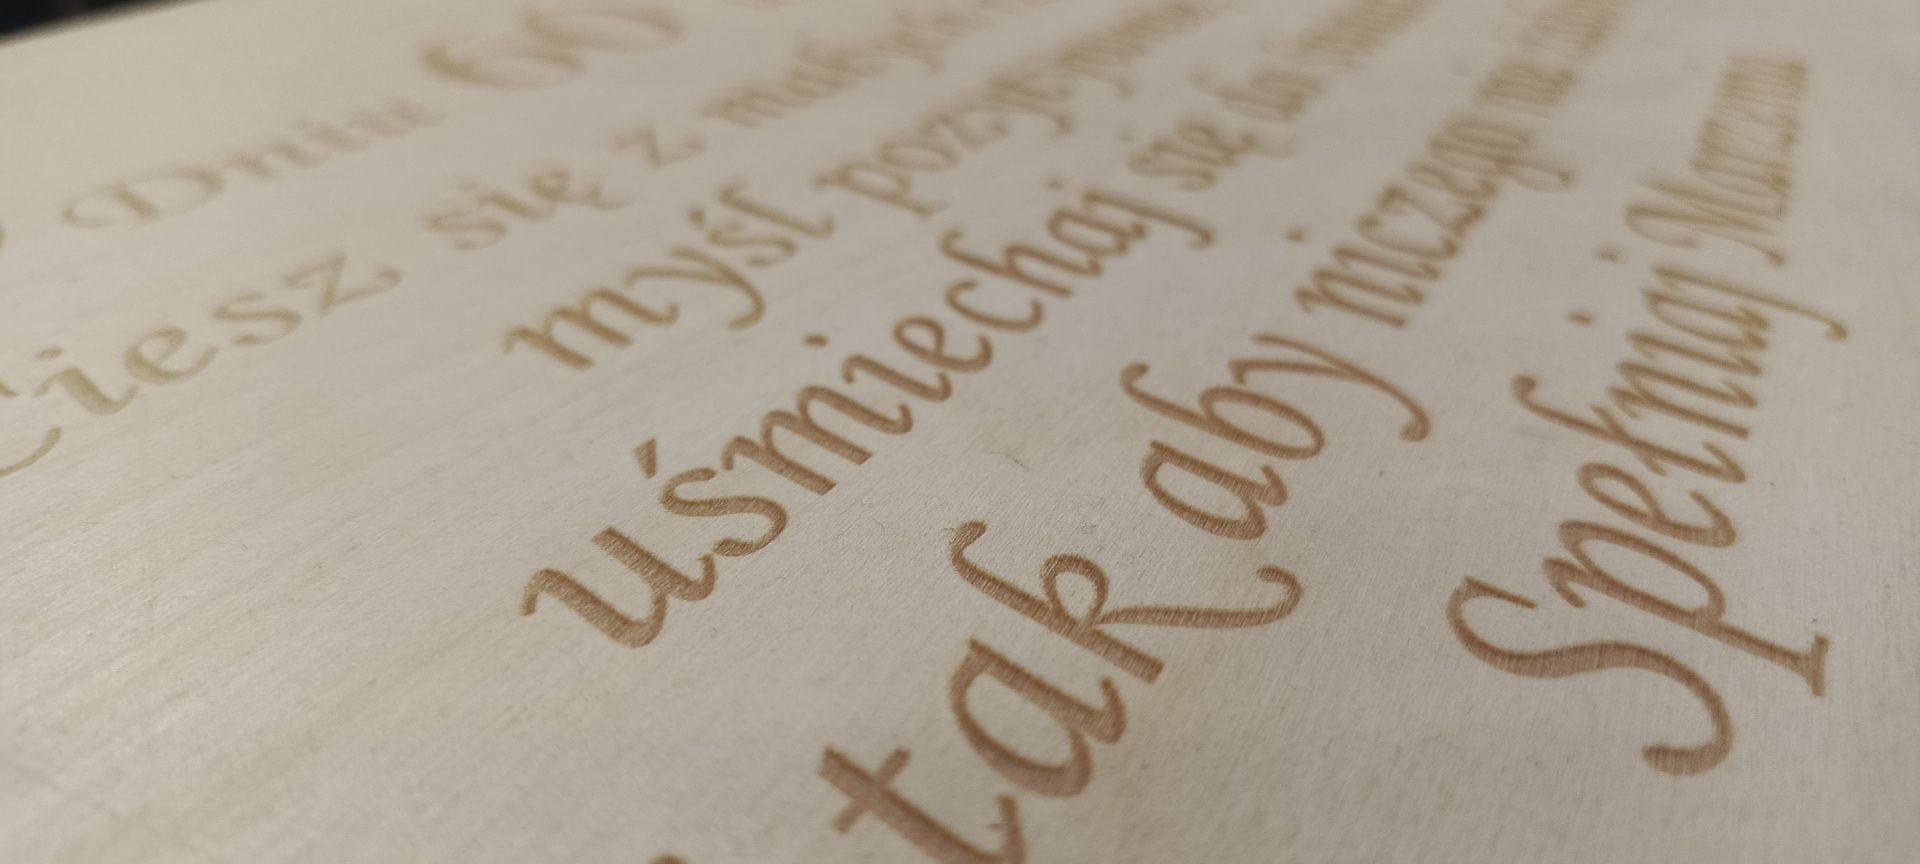 Dniu 60
Ciesz się z małych
myśl pozytywnie
uśmiechaj się do
tak aby niczego nie
Spełniaj Marzenia